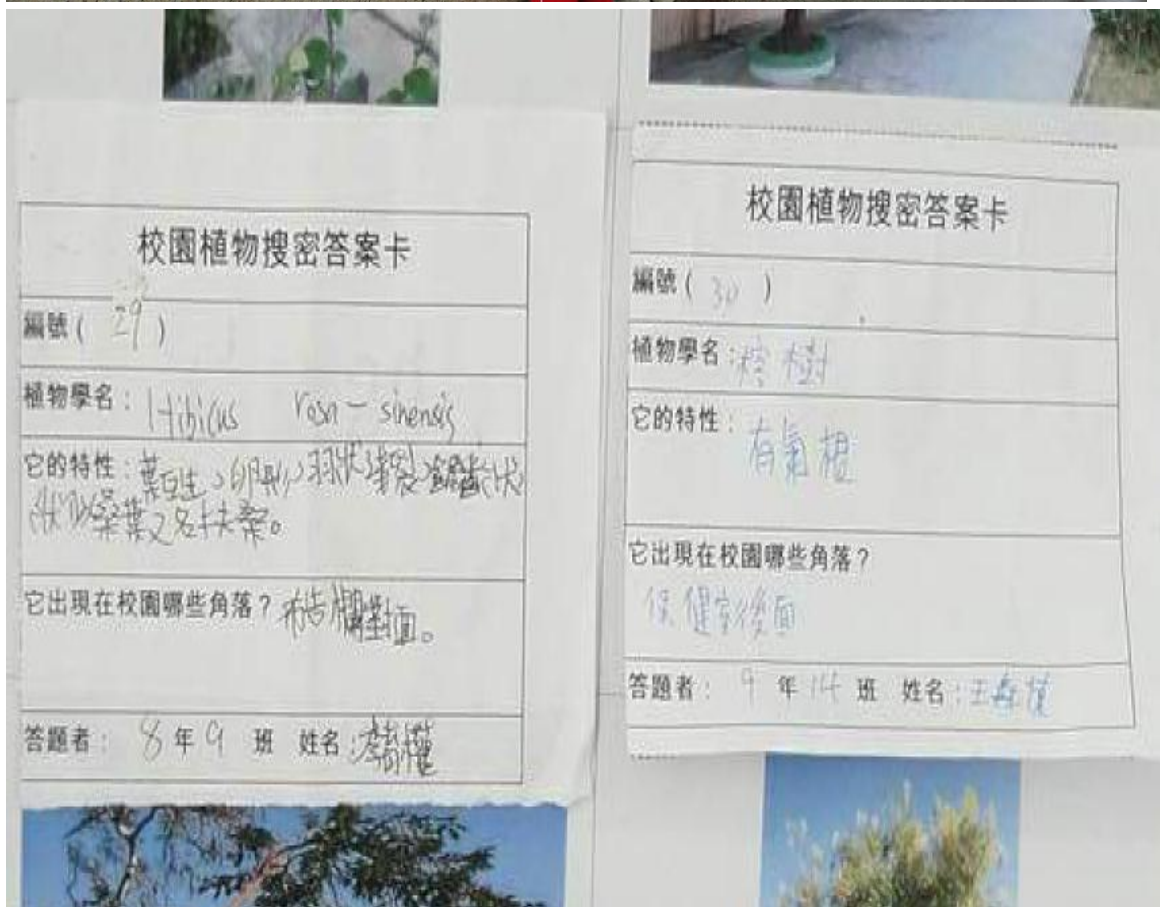 校園植物搜密答案卡
編號( 29 )
植物學名: Hibicus rosa-sinensis
它的特性:葉互生、卵形、羽狀裂、鋸齒(狀)
桑葉又名扶桑。
它出現在校園哪些角落? 布告欄對面。
答題者: 8 年 9 班 姓名:
校園植物搜密答案卡
編號( 30 )
植物學名:榕樹
它的特性:
有氣根
它出現在校園哪些角落?
保健室後面
答題者: 9 年 14 班 姓名:王